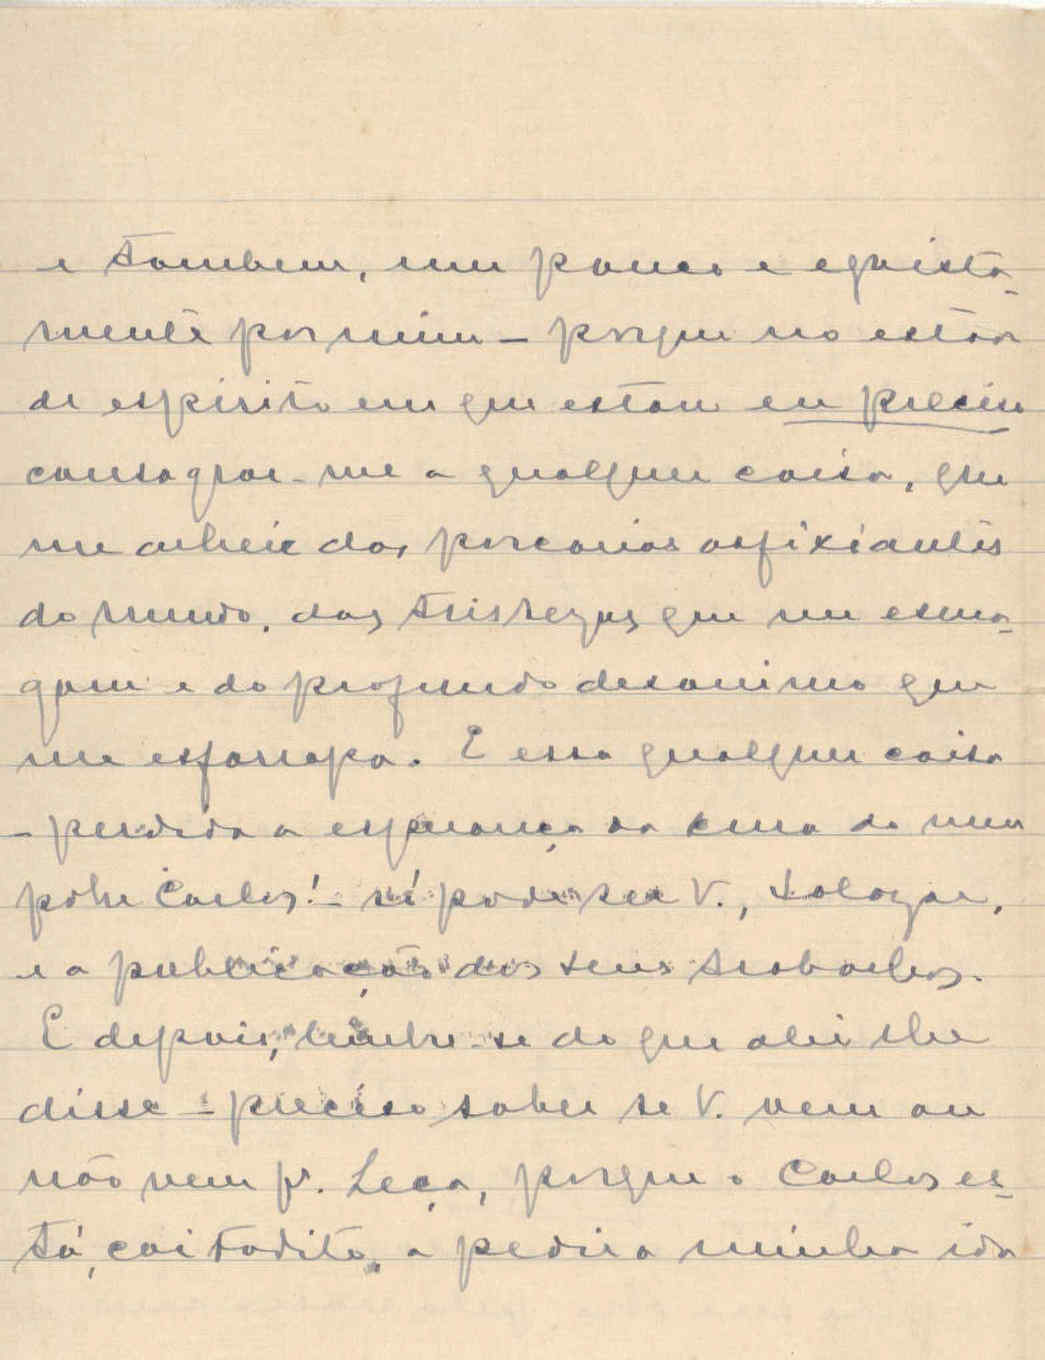 e tambem, um pouco e egoista-
mente por mim – porque no estado
de espirito em que estou eu preciso
consagrar-me a qualquer coisa, que
me alheie das porcarias asfixiantes
do mundo, das tristezas que me esma-
gam e do profundo desanimo que
me esfarrapa. E essa qualquer coisa
– perdida a esperança da cura do meu
pobre Carlos! – só pode ser V., Salazar,
e a publicação dos seus trabalhos.
E depois, lembre-se do que ahi lhe
disse – preciso saber se V. vem ou
não vem p.ª Leça, porque o Carlos es-
tá, coitadito, a pedir a minha ida